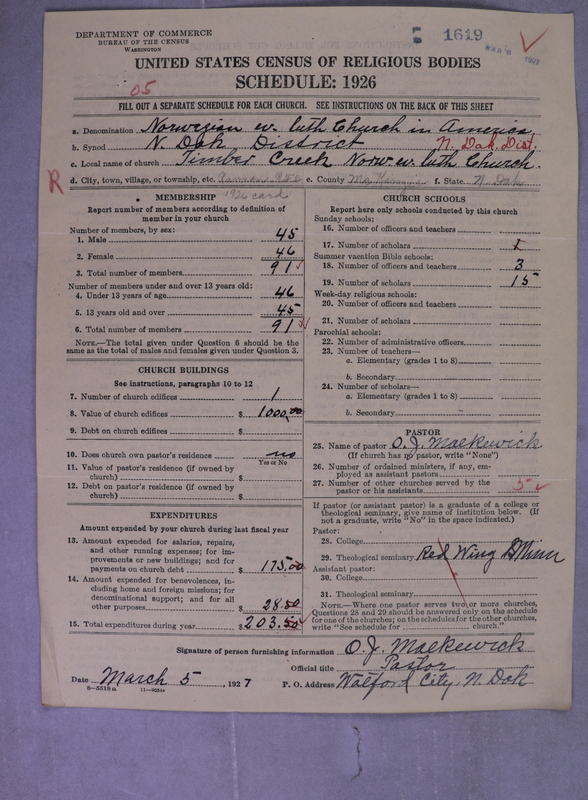 DEPARTMENT OF COMMERCE
BUREAU OF THE CENSUS
WASHINGTON
1619
MAR 8 1927
UNITED STATES CENSUS OF RELIGIOUS BODIES
SCHEDULE: 1926
05
FILL OUT A SEPARATE SCHEDULE FOR EACH CHURCH. SEE INSTRUCTIONS ON THE BACK OF THIS SHEET
a. Denomination Norwegian ev. luth Church in America
b. Synod N. Dak District N. Dak. Dist.
c. Local name of church Timber Creek Norw ev. luth Church.
R
d. City, town, village, or township, etc. e. County f. State N. Dak
1926 card
MEMBERSHIP
Report number of members according to definition of
member in your church
Number of members, by sex:
1. Male 45
2. Female 46
3. Total number of members 91
Number of members under and over 13 years old:
4. Under 13 years of age 46
5. 13 years old and over 45
6. Total number of members 91
NOTE.—The total given under Question 6 should be the
same as the total of males and females given under Question 3.
CHURCH BUILDINGS
See instructions, paragraphs 10 to 12
7. Number of church edifices 1
8. Value of church edifices $ 1000.00
9. Debt on church edifices $
10. Does church own pastor's residence? no
Yes or No
11. Value of pastor's residence (if owned by
church) $
12. Debt on pastor's residence (if owned by
church) $
EXPENDITURES
Amount expended by your church during last fiscal year
13. Amount expended for salaries, repairs,
and other running expenses; for im-
provements or new buildings; and for
payments on church debt $ 175.00
14. Amount expended for benevolences, in-
cluding home and foreign missions; for
denominational support; and for all
other purposes 28.50
15. Total expenditures during year $ 203.50
CHURCH SCHOOLS
Report here only schools conducted by this church
Sunday schools:
16. Number of officers and teachers
17. Number of scholars
Summer vacation Bible schools:
18. Number of officers and teachers 3
19. Number of scholars 15
Week-day religious schools:
20. Number of officers and teachers
21. Number of scholars
Parochial schools:
22. Number of administrative officers
23. Number of teachers—
a. Elementary (grades 1 to 8)
b. Secondary
24. Number of scholars—
a. Elementary (grades 1 to 8)
b. Secondary
PASTOR
25. Name of pastor O. J. Malkewick
(If church has no pastor, write "None")
26. Number of ordained ministers, if any, em-
ployed as assistant pastors
27. Number of other churches served by the
pastor or his assistants 5
If pastor (or assistant pastor) is a graduate of a college or
theological seminary, give name of institution below. (If
not a graduate, write "No" in the space indicated.)
Pastor:
28. College
29. Theological seminary Red Wing Minn
Assistant pastor:
30. College
31. Theological seminary
NOTE.—Where one pastor serves two or more churches,
Questions 28 and 29 should be answered only on the schedule
for one of the churches; on the schedules for the other churches,
write "See schedule for church."
Signature of person furnishing information O. J. Malkewick
Official title Pastor
Date March 5, 1927 P. O. Address Watford City, N. Dak
8—5518a 11—9034